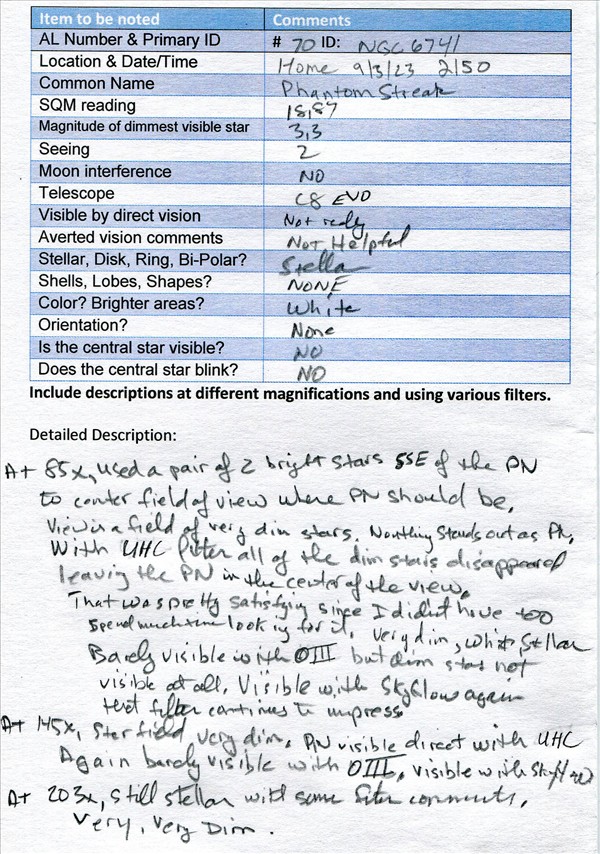 Item to be noted Comments
AL Number & Primary ID # 70 ID: NGC 6741
Location & Date/Time Home 9/3/23 2150
Common Name Phantom Streak
SQM reading 18,87
Magnitude of dimmest visible star 3,3
Seeing 2
Moon interference NO
Telescope C8 EVO
Visible by direct vision Not really
Averted vision comments Not Helpful
Stellar, Disk, Ring, Bi-Polar? Stella
Shells, Lobes, Shapes? NONE
Color? Brighter areas? White
Orientation? None
Is the central star visible? NO
Does the central star blink? NO
Include descriptions at different magnifications and using various filters.
Detailed Description:
At 85x, used a pair of 2 bright stars SSE of the PN
to center field of view where PN should be,
View is a field of very dim stars. Nothing stands out as PN,
With UHC filter all of the dim stars disappeared
leaving the PN in the center of the view.
That was pretty satisfying since I didn't have too
spend much time looking for it, very dim, white, stellar
Barely visible with OIII but dim stars not
visible at all, Visible with SkyGlow again
that filter continues to impress
At 145x, star field very dim, PN visible direct with UHC
Again barely visible with OIII, visible with Skyglow
At 203x, still stellar with same filter comments,
Very, very Dim.